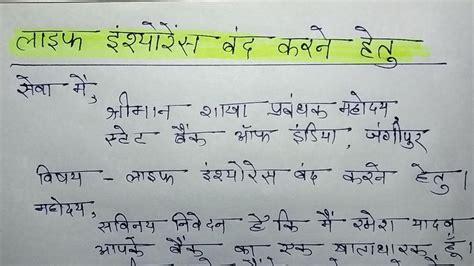 लाइफ इंश्योरेंस बंद करने हेतु
सेवा में,
श्रीमान शाखा प्रबंधक महोदय
स्टेट बैंक ऑफ इंडिया, जंगीपुर
विषय - लाइफ इंश्योरेंस बंद करने हेतु।
महोदय,
सविनय निवेदन है कि मैं रमेश यादव
आपके बैंक का एक खाताधारक हूँ।